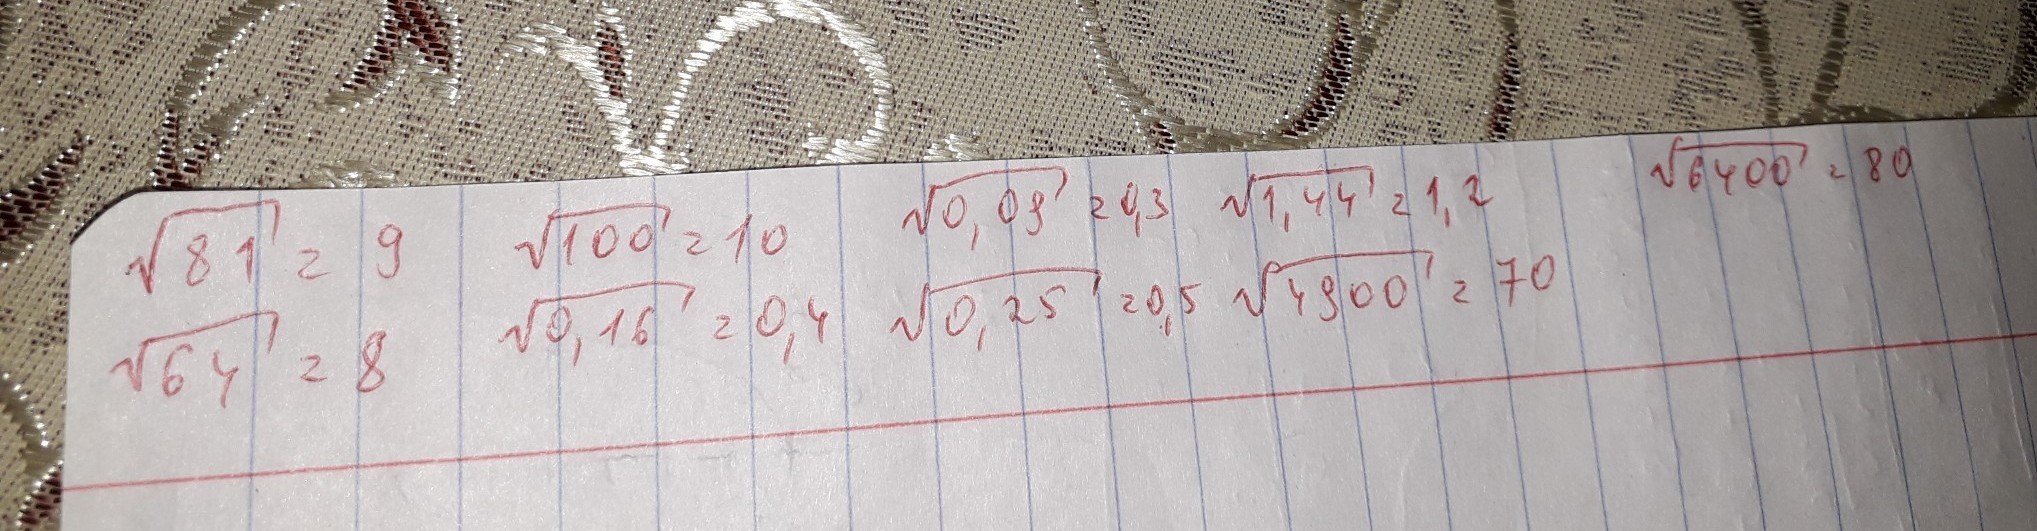 √81 = 9 √100 = 10 √0,09 = 0,3 √1,44 = 1,2 √6400 = 80
√64 = 8 √0,16 = 0,4 √0,25 = 0,5 √4900 = 70